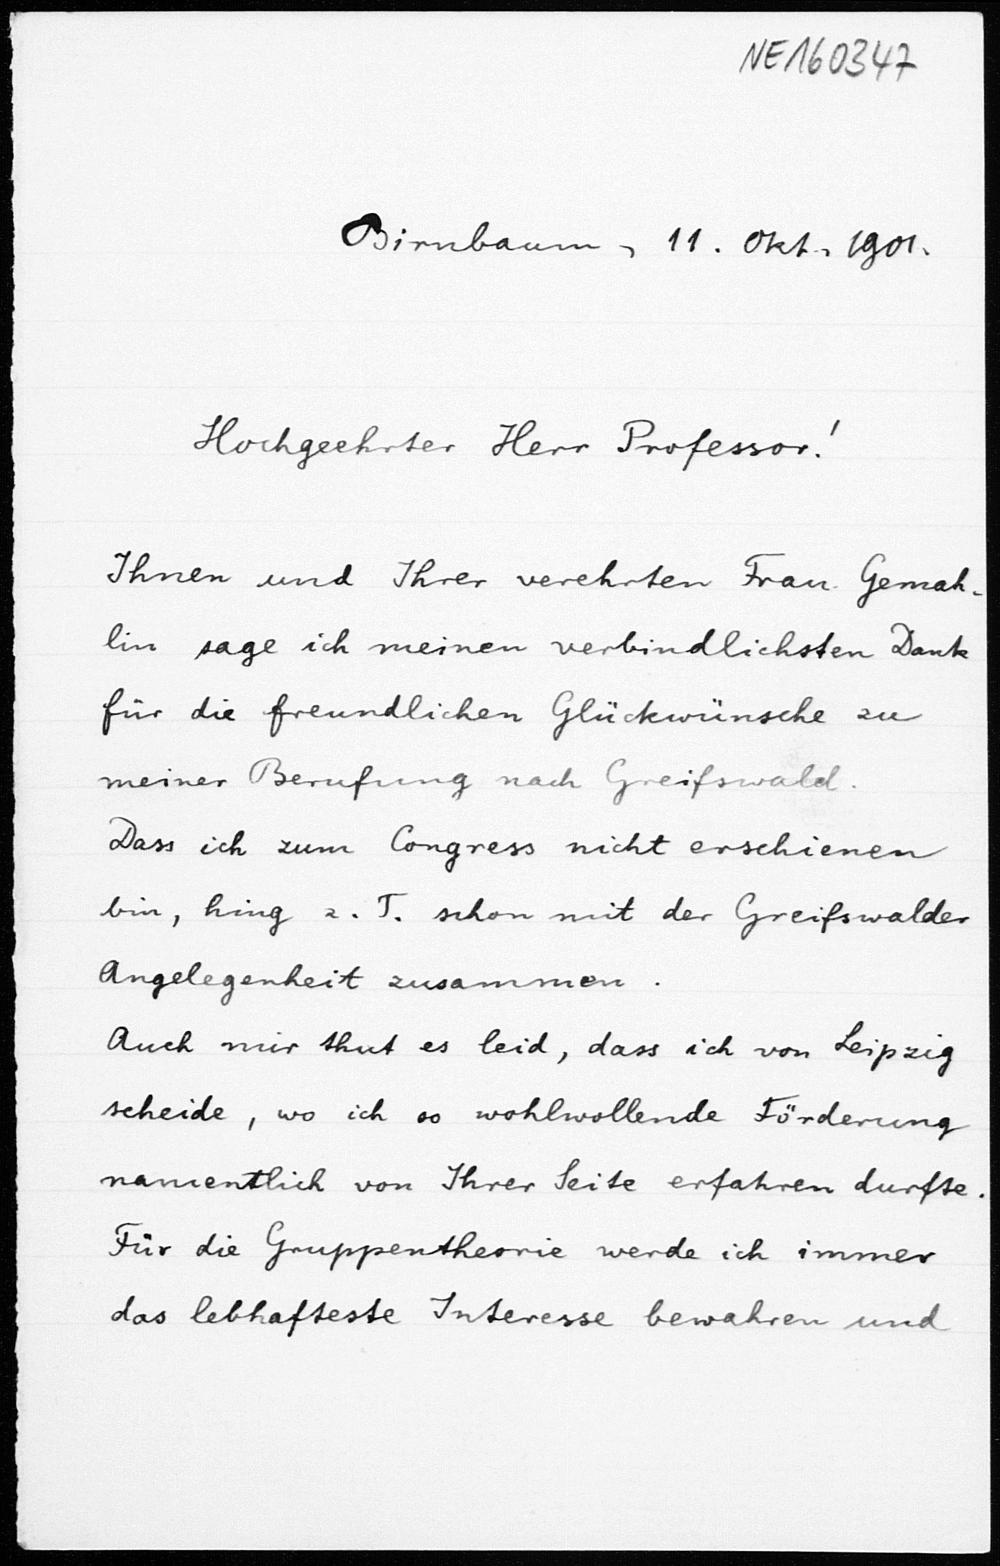 NE160347
Birnbaum, 11. Okt. 1901.
Hochgeehrter Herr Professor!
Ihnen und Ihrer verehrten Frau Gemah-
lin sage ich meinen verbindlichsten Dank
für die freundlichen Glückwünsche zu
meiner Berufung nach Greifswald.
Dass ich zum Congress nicht erschienen
bin, hing z. T. schon mit der Greifswalder
Angelegenheit zusammen.
Auch mir thut es leid, dass ich von Leipzig
scheide, wo ich so wohlwollende Förderung
namentlich von Ihrer Seite erfahren durfte.
Für die Gruppentheorie werde ich immer
das lebhafteste Interesse bewahren und